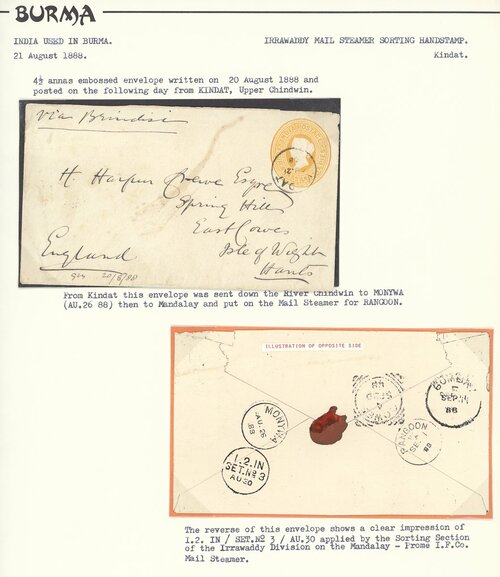 BURMA
INDIA USED IN BURMA.
IRRAWADDY MAIL STEAMER SORTING HANDSTAMP.
21 August 1888.
Kindat.
4½ annas embossed envelope written on 20 August 1888 and
posted on the following day from KINDAT, Upper Chindwin.
Via Brindisi
H. Harpur Crewe Esqre
Spring Hill
East Cowes
Isle of Wight
Hants
England
20/8/88
From Kindat this envelope was sent down the River Chindwin to MONYWA
(AU.26 88) then to Mandalay and put on the Mail Steamer for RANGOON.
ILLUSTRATION OF OPPOSITE SIDE
BOMBAY
SEP.11
88
MONYWA
AU.26
88
RANGOON
SE
88
1.2.IN
SET.Nº 3
AU.30
The reverse of this envelope shows a clear impression of
1.2. IN / SET.Nº 3 / AU.30 applied by the Sorting Section
of the Irrawaddy Division on the Mandalay - Prome I.F.Co.
Mail Steamer.